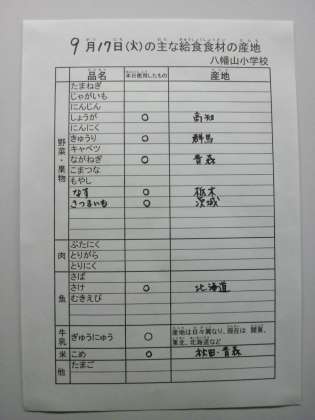 9月17日(火)の主な給食食材の産地
八幡山小学校
品名 本日使用したもの 産地
野菜・果物
たまねぎ
じゃがいも
にんじん
しょうが ○ 高知
にんにく
きゅうり ○ 群馬
キャベツ
ながねぎ ○ 青森
こまつな
もやし
なす ○ 栃木
さつまいも ○ 茨城
肉
ぶたにく
とりがら
とりにく
魚
さば
さけ ○ 北海道
むきえび
牛乳 ぎゅうにゅう ○ 産地は日々異なり、現在は 関東、東北、北海道など
米 こめ ○ 秋田・青森
他 たまご